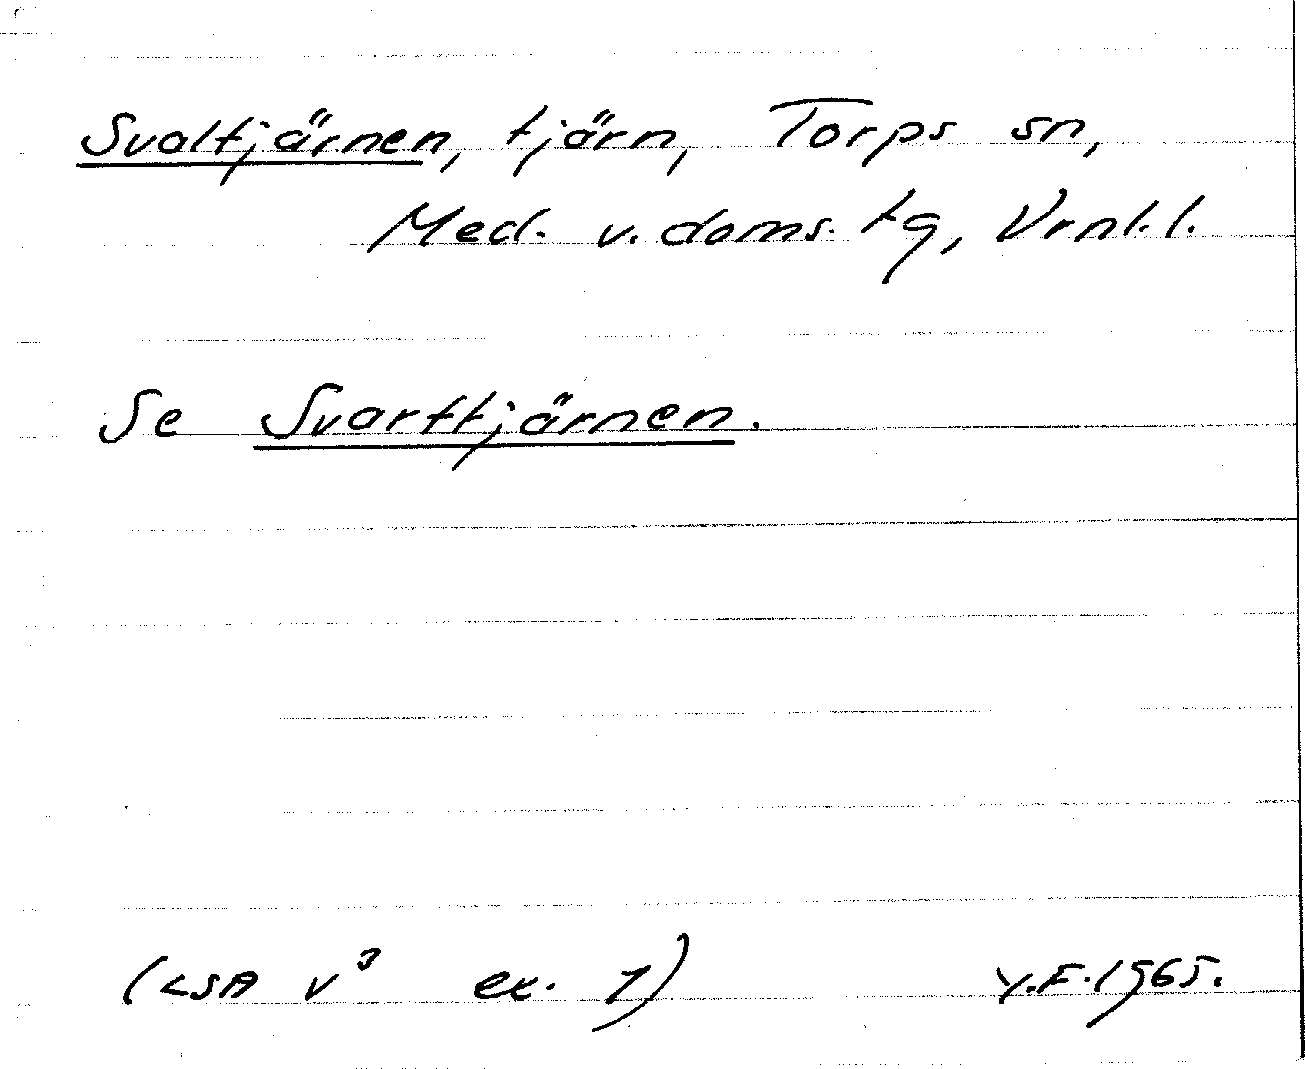 Svaltjärnen, tjärn, Torps sn,
Med. v. doms. tg, Vrnl. l.
Se Svarttjärnen.
(LSA V³ ex. 1) Y.F. 1965.